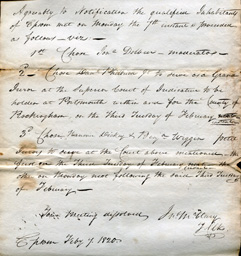 Agreeably to Notification the qualified Inhabitants
of Epsom met on Monday the 7th instant & proceeded
as follows – viz –
1st Chose Jno Dolbeer – moderator
2 – Chose to serve as Grand
Juror at the Superior Court of Judicature to be
holden at Portsmouth within and for the County of
Rockingham on the Third Tuesday of February
3d Chose & Wiggin petit
Jurors to serve at the Court above mentioned
on the Third Tuesday of February
other on Monday next following the said Third Tuesday
of February –
This Meeting dissolved
Jno McClary
T. Clk
Epsom Feby 7. 1820